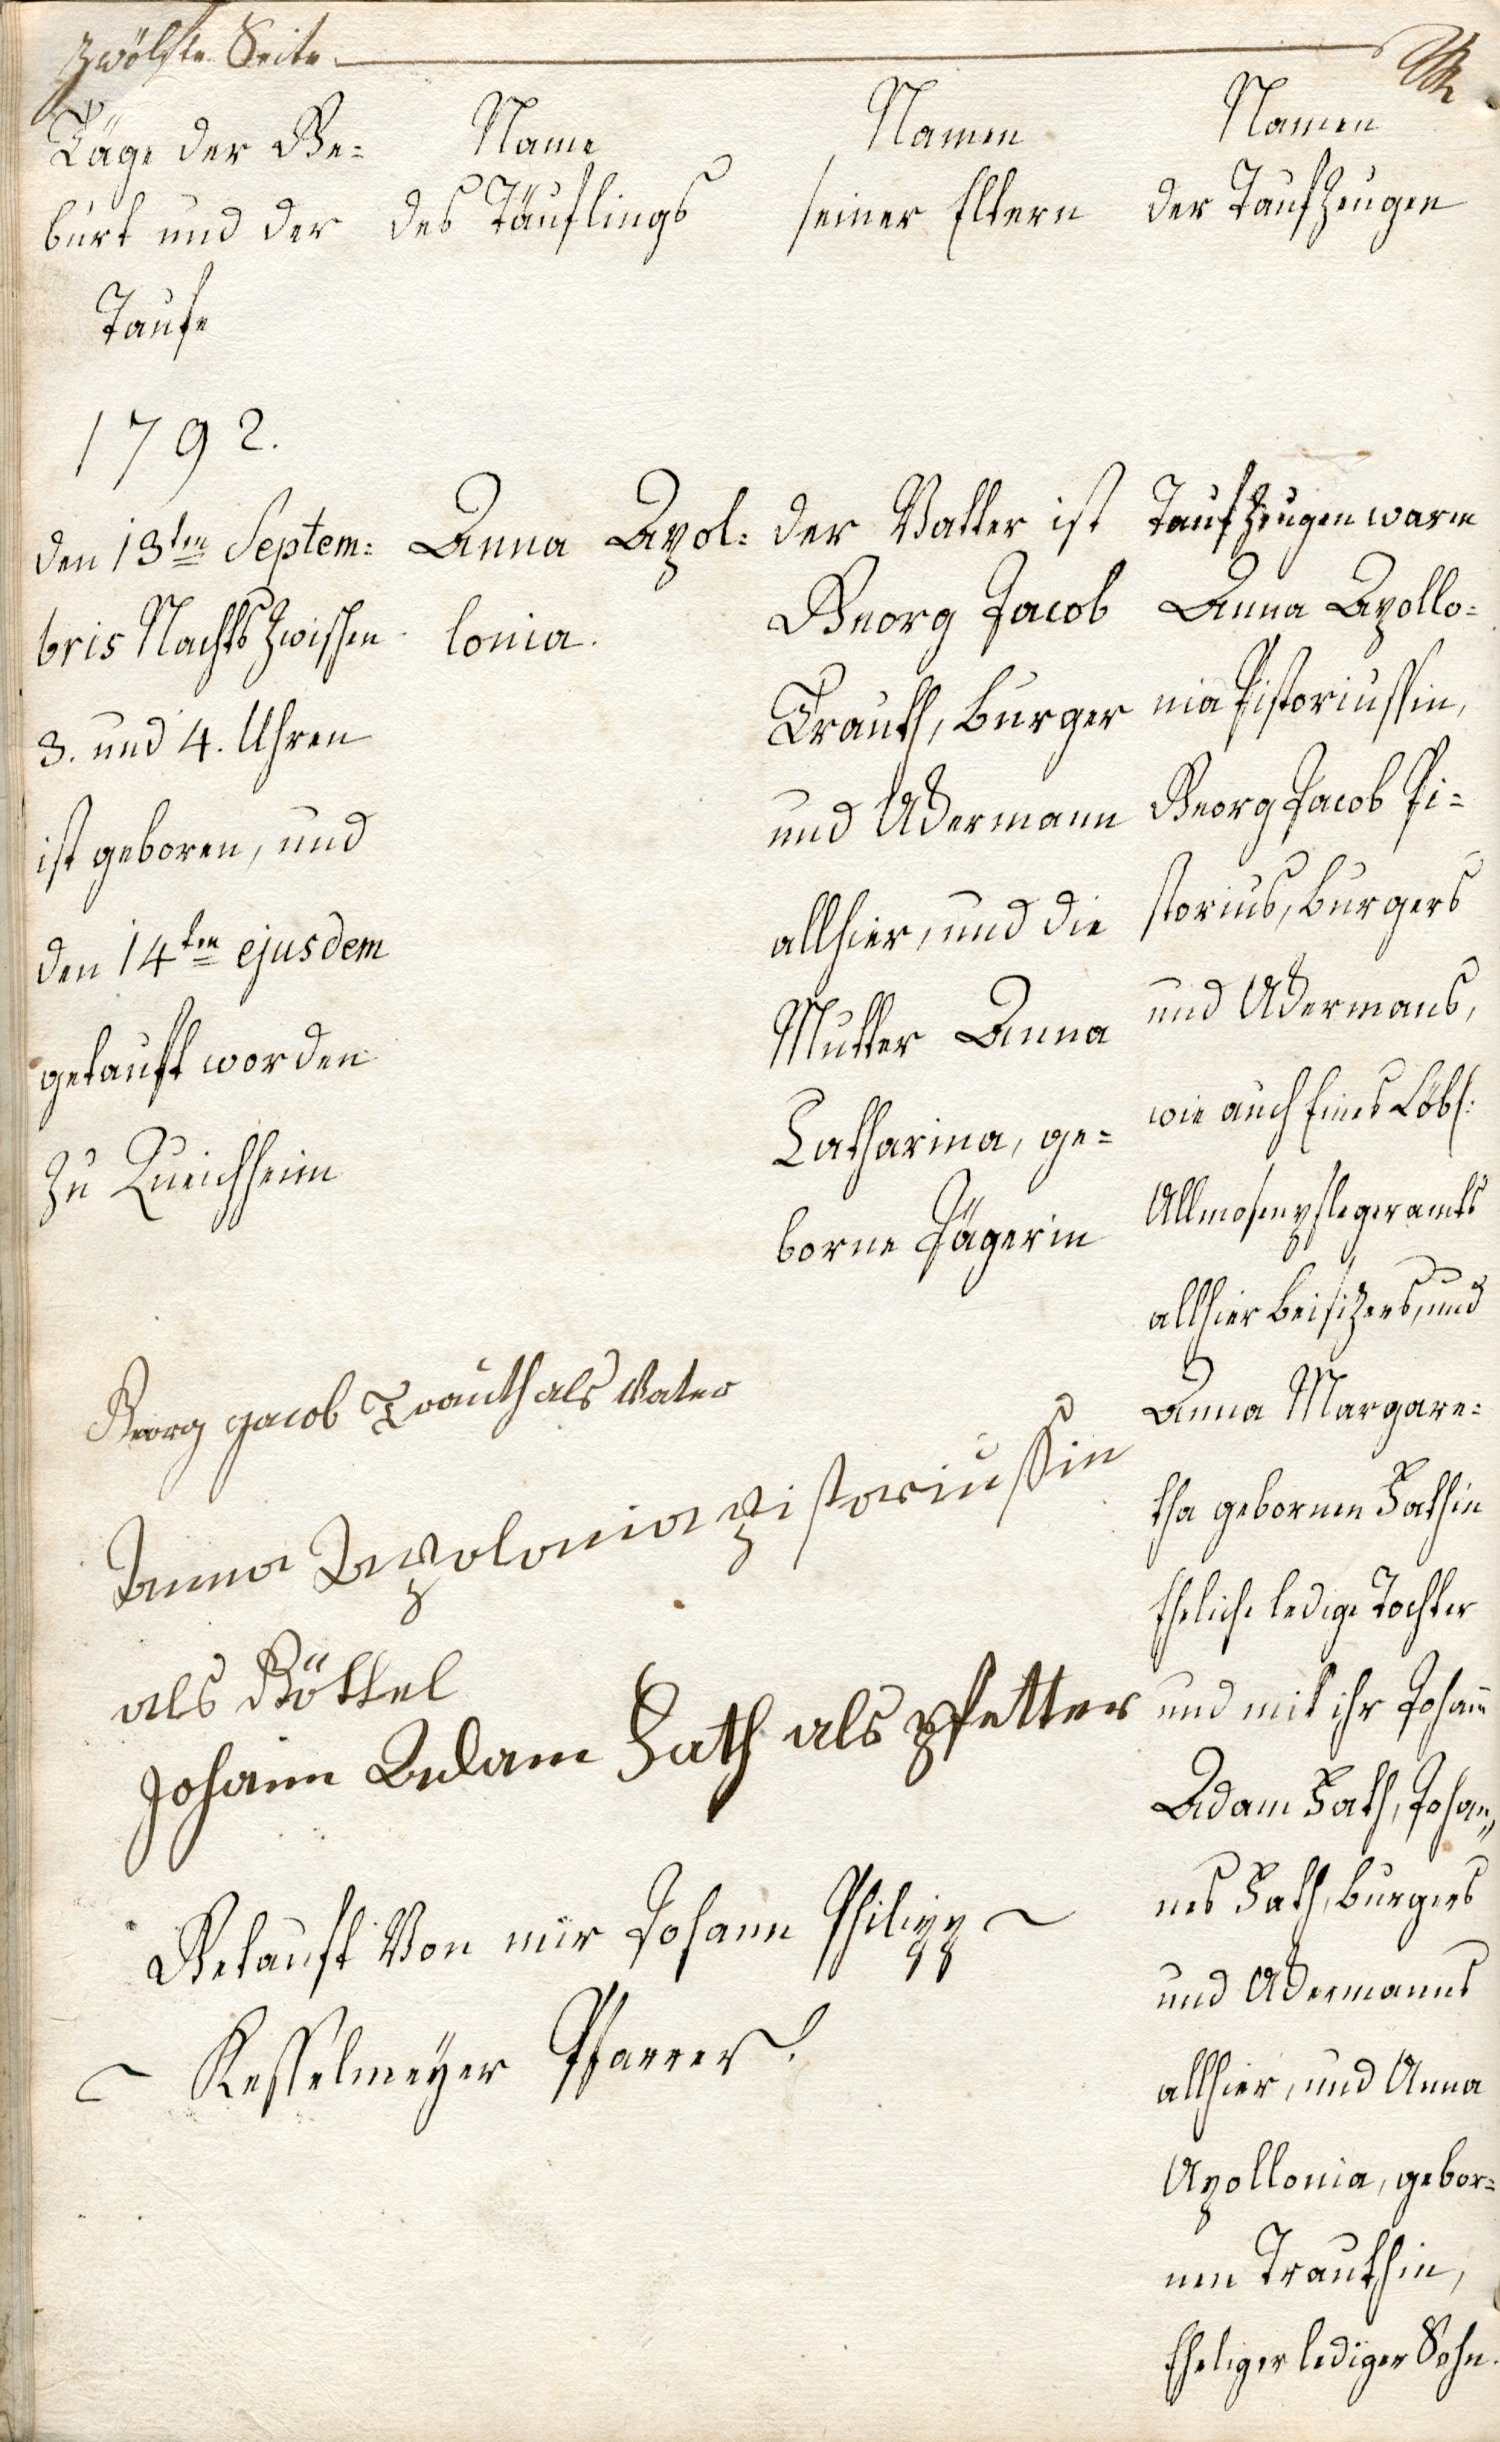 Zwölfte Seite
Täge der Ge=
burt und der
Taufe
Name
des Täuflings
Namen
seiner Eltern
Namen
der Taufzeugen
1792.
den 13ten Septem=
bris Nachts zwischen
3. und 4. Uhren
ist geboren, und
den 14ten ejusdem
getauft worden
zu Queichheim
Anna Apol=
lonia.
der Vatter ist
Georg Jacob
Trauth, burger
und Ackermann
allhier, und die
Mutter Anna
Catharina, ge=
borne Jägerin
Taufzeugen waren
Anna Apollo=
nia Pistoriussin,
Georg Jacob Pi=
storius, burgers
und Ackermans,
wie auch Eines Löbl:
Allmosenpflegeramts
allhier beisitzers, und
Anna Margare=
tha gebornen Hathin
Eheliche ledige Tochter
und mit ihr Johann
Adam Hath, Johan„
nes Hath, burgers
und Ackermanns
allhier, und Anna
Apollonia, gebor=
nen Trauthin,
Eheliger lediger Sohn.
Georg Jacob Trauth als Vater
Anna Apolonia Pistoriussin
als Göttel
Johann Adam Hath als Pfetter
Getauft Von mir Johann Philipp
Kesselmeÿer Pfarrer.